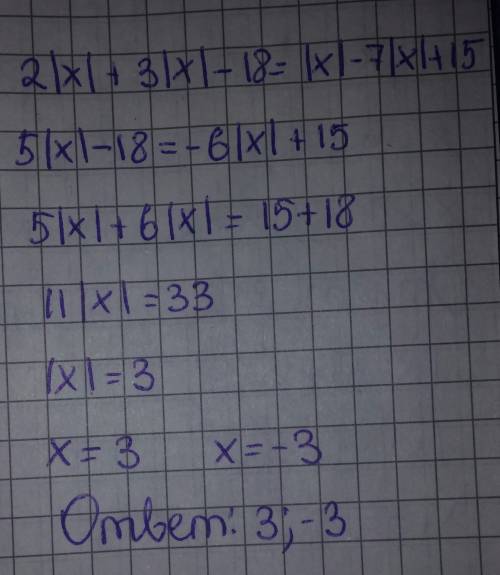 2|x| + 3|x| - 18 = |x| - 7|x| + 15
5|x| - 18 = -6|x| + 15
5|x| + 6|x| = 15 + 18
11|x| = 33
|x| = 3
x = 3 x = -3
Ответ: 3; -3